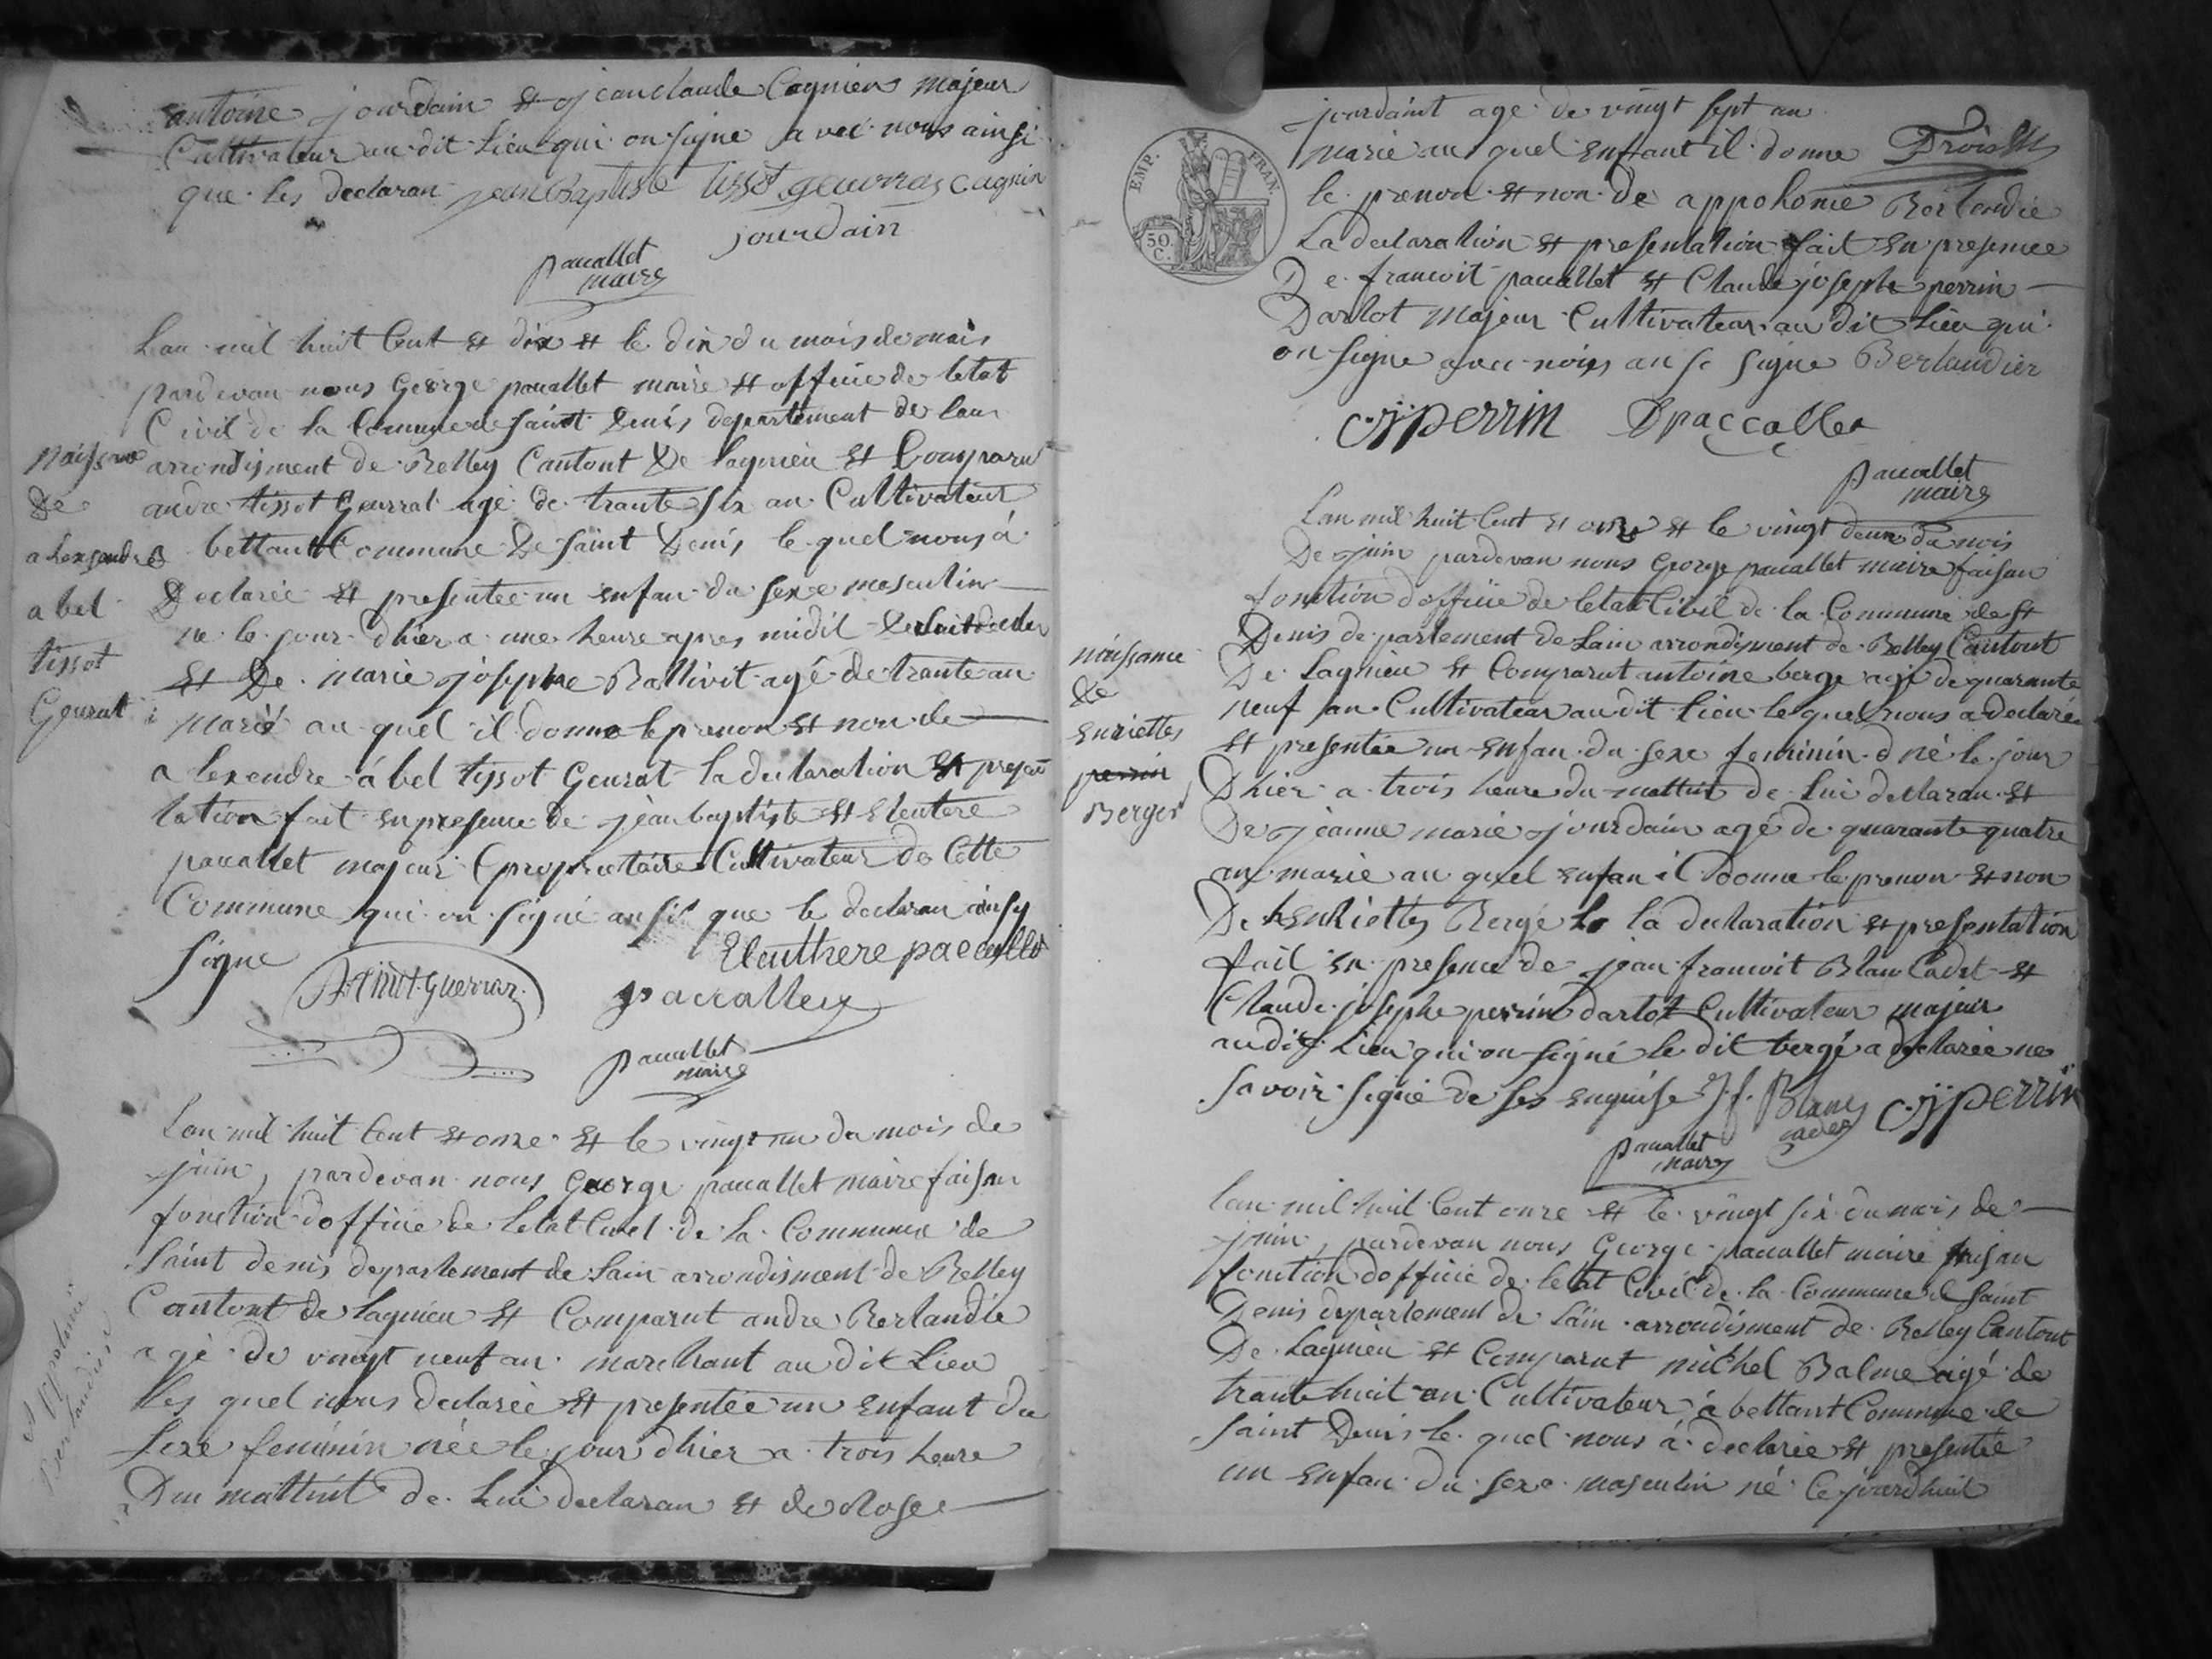 antoine jourdain et jean claude Cagnien majeur
Cultivateur au dit Lieu qui on signe avec nous ainsi
que les declaran jean Baptiste tissot geurras cagnin
jourdain
pacallet
maire
Lan mil huit Cent et dix et le dix du mois de mais
pardevan nous George pacallet maire et officie de letat
Civil de la Commune de saint denis departement de lain
arrondisment de Belley Cantont de lagnieu et Comparu
andre tissot Geurrat age de trante six an Cultivateur
a bettant Commune de saint Denis le quel nous á
Declarée et presentée un enfan du sexe masculin
ne le jour dhier a une heure apres midit
et De marie josephe Ballivit agé de trante an
marié au quel il donne le prenon et non de
alexendre ábel tissot Geurat la declaration et presan
tation fait en presence de jean baptiste et eleutere
pacallet majeur proprietaire Cultivateur de Cette
Commune qui on signé ansit que le declaran ainsy
signe
Eleuthere paccallet
paccallet
pacallet
maire
Naissance
de
alexsendre
abel
tissot
Geurat
Lan mil huit Cent et onze et le vingt un du mois de
juin, pardevan nous George pacallet maire faisan
fonction dofficie de letat Civel de la Commune de
saint denis departement de lain arrondisment de Belley
Cantont de lagnieu et Comparut andre Berlandie
agé de vingt neuf an marchant au dit Lieu
les quel nous declarée et presentée un enfant du
sexe feminin née le jour dhier a trois heure
Du mattint de lui declaran et de Rose
Appolonie
Berlandier
EMP. FRAN.
50.
C.
jourdaint age de vingt sept an
marie au quel enfant il donne
le prenon et non de appolonie Berlendie
La declaration et presentation fait en presence
De francoit pacallet et Claude josephe perrin
Darlot majeur Cultivateur au dit Lieu qui
on signe avec nous an si signe Berlandier
cjperrin paccallet
pacallet
maire
Lan mil huit Cent et onze et le vingt deux du mois
De juin pardevan nous George pacallet maire faisan
fonction dofficie de letat Civil de la Commune de st
Denis departement de Lain arrondisment de Belley Cantont
De Lagnieu et Comparut antoine berge agé de quarante
neuf an Cultivateur au dit Lieu le quel nous a declarée
et presentée un enfan du sexe feminin né le jour
Dhier a trois heure du mattin de lui declaran et
De jeanne marie jourdain agé de quarante quatre
an marie au quel enfan il donne le prenon et non
De henriettes Bergé la declaration et presentation
fait en presence de jean francoit Blanc Cadet et
Claude josephe perrin darlot Cultivateur majeur
au dit Lieu qui on signé le dit bergé a declarée ne
savoir signé de ses enquise J. f. Blanc cjperrin
cadet
pacallet
maire
naissance
de
enriettes
perrin
Berger
lan mil huit Cent onze et le vingt six du mois de
juin, pardevan nous George pacallet maire faisan
fonction dofficie de letat Civil de la Commune de saint
Denis departement de Lain arrondisment de Belley Cantont
De Lagnieu et Comparut michel Balme agé de
trante huit an Cultivateur á bettant Commune de
saint Denis le quel nous á declarée et presentée
un enfan du sexe masculin né